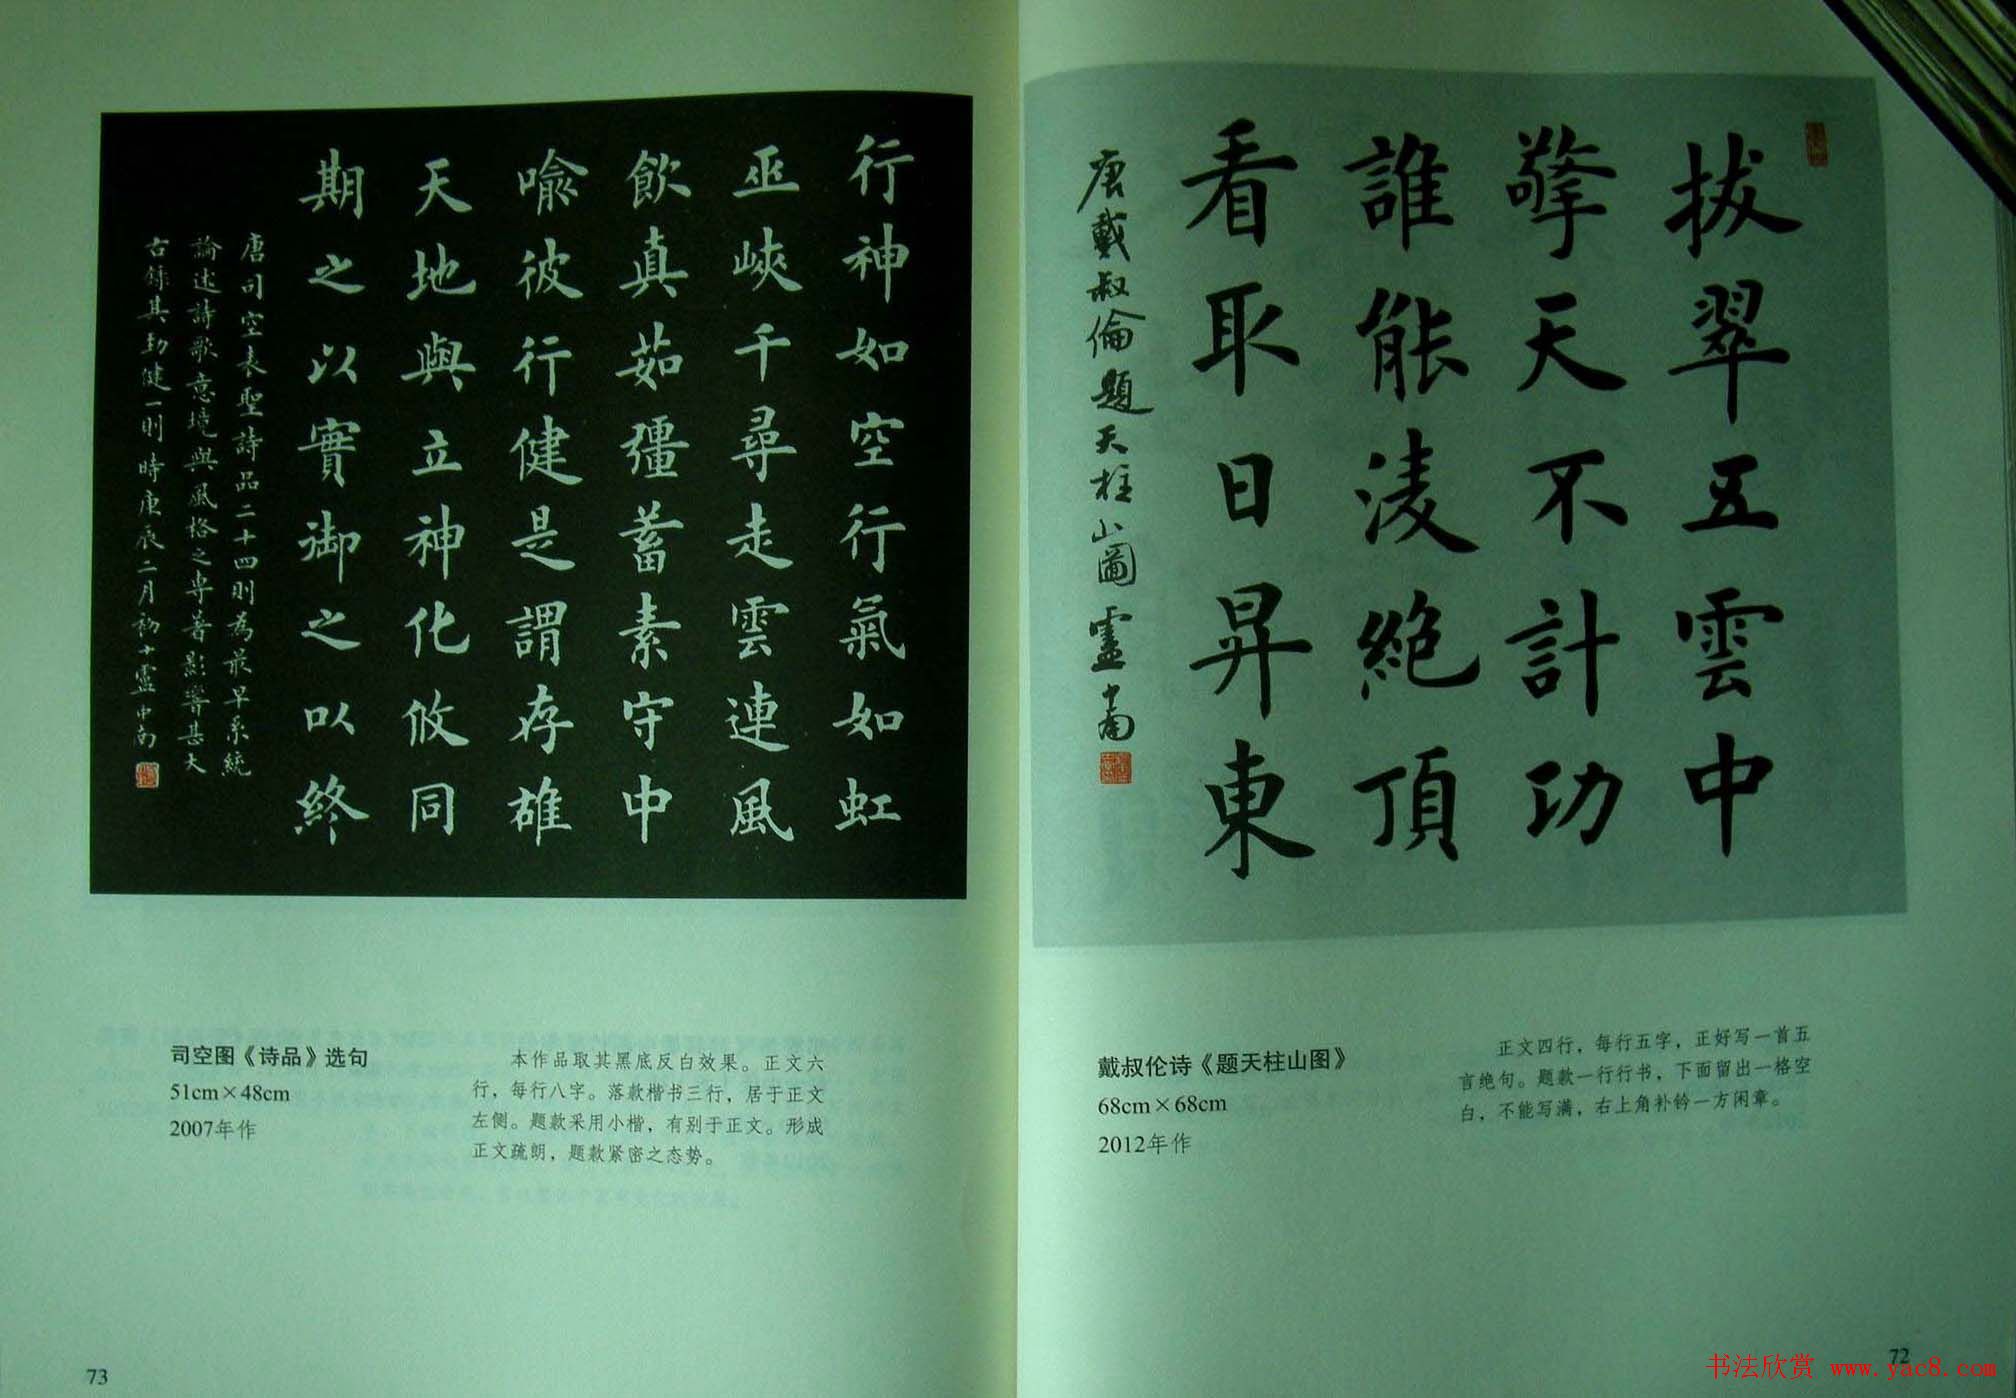 拔翠五雲中
擎天不計功
誰能淩絶頂
看取日昇東
唐戴叔倫題天柱山圖 盧中南
戴叔伦诗《题天柱山图》
68cm×68cm
2012年作
正文四行，每行五字，正好写一首五
言绝句。题款一行行书，下面留出一格空
白，不能写满，右上角补钤一方闲章。
72
行神如空行氣如虹
巫峽千尋走雲連風
飲真茹彊蓄素守中
喻彼行健是謂存雄
天地與立神化攸同
期之以實御之以終
唐司空表聖詩品二十四則為最早系統
論述詩歌意境與風格之專著影響甚大
右錄其勁健一則時庚辰二月初十盧中南
司空图《诗品》选句
51cm×48cm
2007年作
本作品取其黑底反白效果。正文六
行，每行八字。落款楷书三行，居于正文
左侧。题款采用小楷，有别于正文。形成
正文疏朗，题款紧密之态势。
73
书法欣赏 www.yac8.com